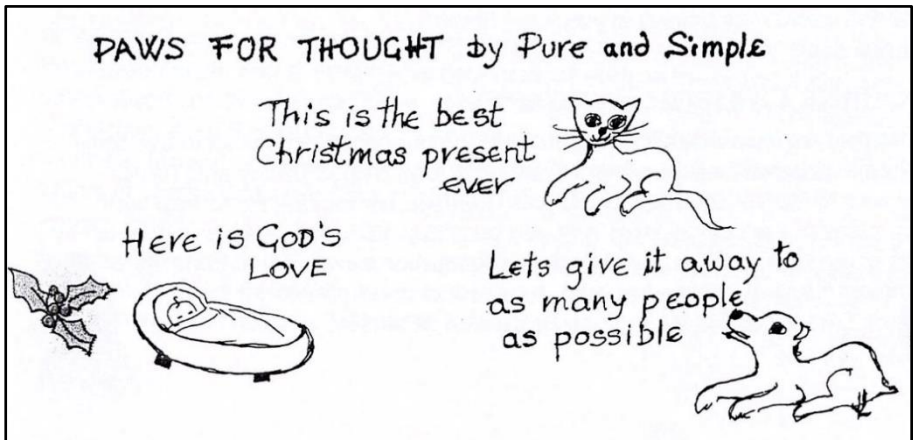 PAWS FOR THOUGHT by Pure and Simple
This is the best
Christmas present
ever.
Here is GOD'S
LOVE
Lets give it away to
as many people
as possible